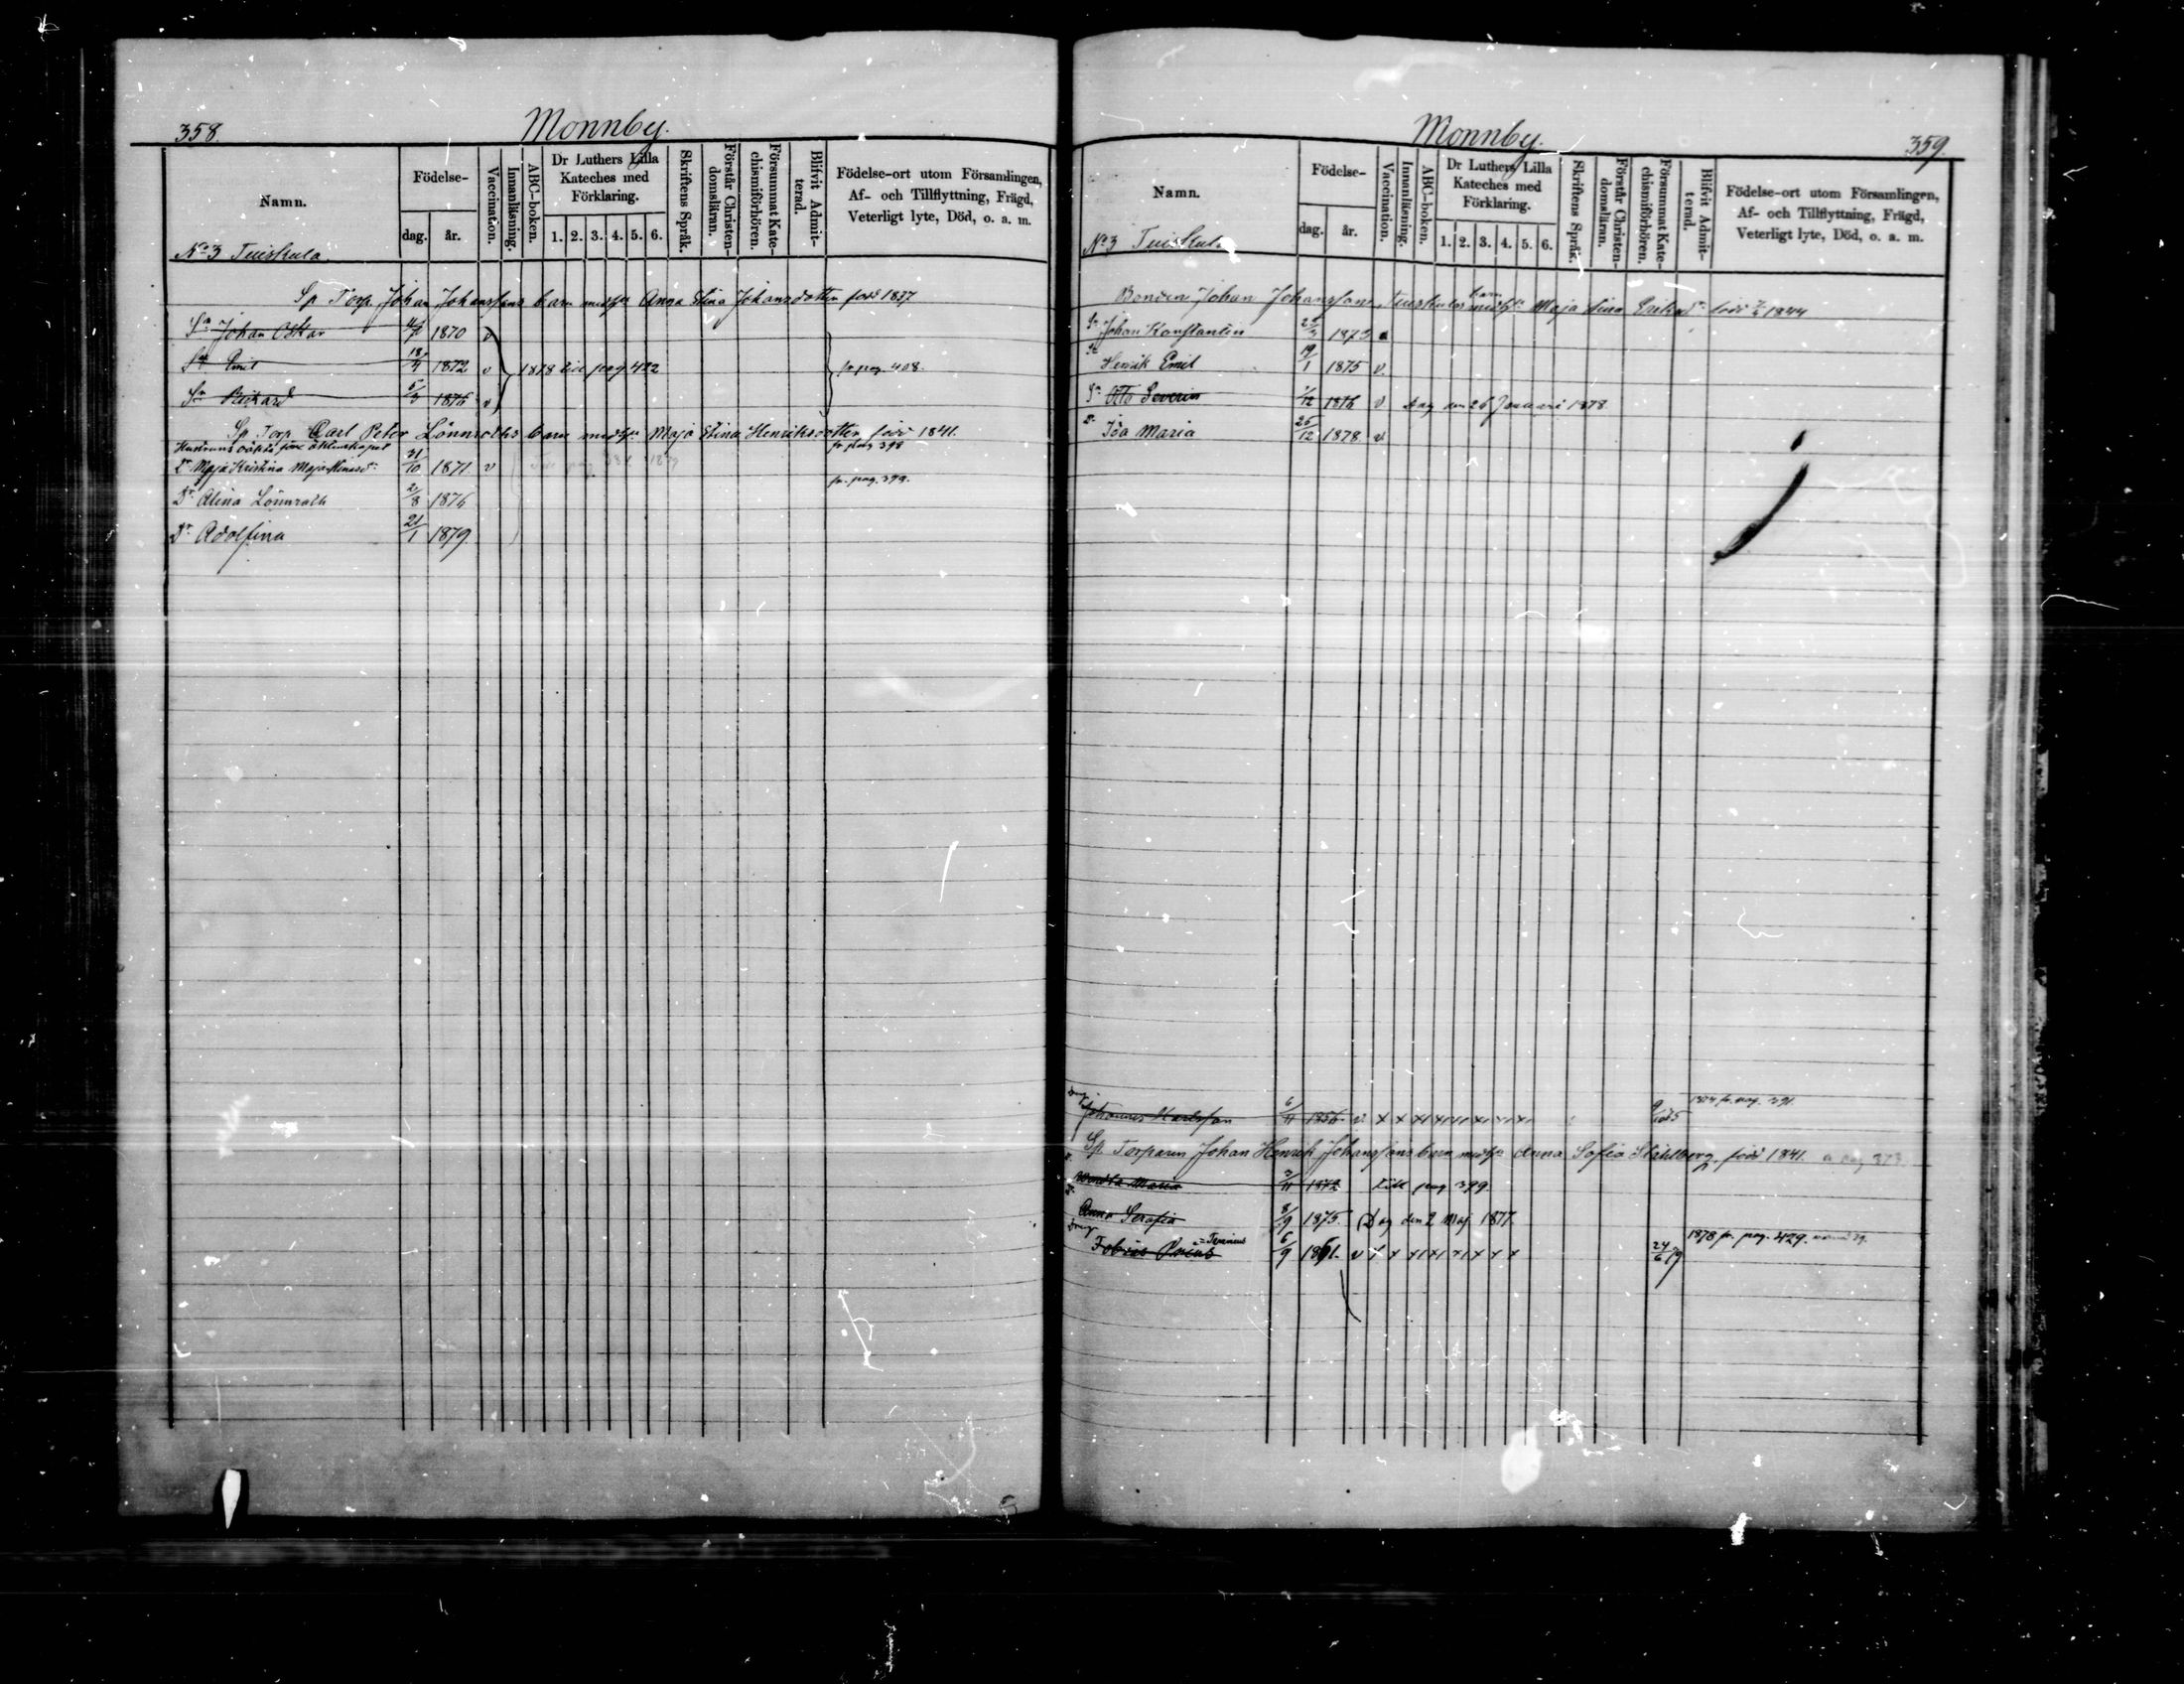 358.
Monnby.
Namn.
Födelse-
dag.
år.
Vaccination.
Innanläsning.
ABC-boken.
Dr Luthers Lilla Kateches med Förklaring.
1. 2. 3. 4. 5. 6.
Skriftens Språk.
Förstår Christen-domsläran.
Försummat Kate-chismiförhören.
Blifvit Admit-terad.
Födelse-ort utom Församlingen,
Af- och Tillflyttning, Frägd,
Veterligt lyte, Död, o. a. m.
No 3 Tuiskula.
Sp Torp. Johan Johanssons barn med h:u Anna Stina Johansdotter född 1837
Sn Johan Oskar 1870 v
Sn Emil 18/4 1872 v 1878 till pag. 422 fr. pag. 408.
Sn Rickard 1876 v
Sp Torp Carl Peter Lönnroths barn med h:u Maja Stina Henriksdotter född 1841.
Hustruns oäkta före äktenskapet
Dr Maja Kristina 31/10 1871. v fr. pag 398
Dr Alina Lönnroth 2/8 1876 fr. pag. 399.
Dr Adolfina 21/1 1879.
Monnby.
359.
Namn.
Födelse-
dag.
år.
Vaccination.
Innanläsning.
ABC-boken.
Dr Luthers Lilla Kateches med Förklaring.
1. 2. 3. 4. 5. 6.
Skriftens Språk.
Förstår Christen-domsläran.
Försummat Kate-chismiförhören.
Blifvit Admit-terad.
Födelse-ort utom Församlingen,
Af- och Tillflyttning, Frägd,
Veterligt lyte, Död, o. a. m.
No 3 Tuiskula
Bonden Johan Johansson Tuiskulas barn med h:u Maja Stina Eriksdr född 1844
Sn Johan Konstantin 1873
Sn Henrik Emil 19/1 1875 v.
Sn Otto Severin 1/12 1876 v Dog den 26 Januari 1878.
Dr Ida Maria 25/12 1878 v
Dreng Johannes Karlsson 6/11 1856. v x x x x x x x x fr. pag. 391
Sp. Torparen Johan Henrik Johanssons barn med h:u Anna Sofia Ståhlberg född 1841. a pag 373.
Dr Wendla Maria 1872 till pag 399.
Dr Anna Serafia 8/9 1875. Dog den 2 Maj 1877.
Dreng Tobias 6/9 1861. v x x x x x x x x 24/6 79 1878 fr. pag. 429.